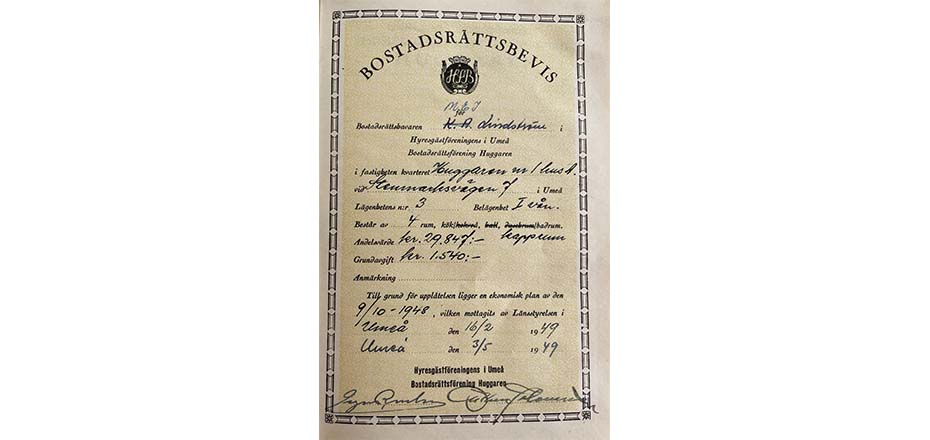 BOSTADSRÄTTSBEVIS
HSB
M & J
för
Bostadsrättshavaren K. A. Lindström i
Hyresgästföreningens i Umeå
Bostadsrättsförening Huggaren
i fastigheten kvarteret Huggaren nr 1 hus A.
vid Stenmarksvägen 7 i Umeå
Lägenhetens n:r 3 Belägenhet I vån.
Består av 4 rum, kök/kokvrå, hall, duschrum/badrum.
Andelsvärde kr. 29.847:- kapprum
Grundavgift kr. 1.540:-
Anmärkning
Till grund för upplåtelsen ligger en ekonomisk plan av den
9/10-1948, vilken mottagits av Länsstyrelsen i
Umeå den 16/2 1949
Umeå den 3/5 1949
Hyresgästföreningens i Umeå
Bostadsrättsförening Huggaren